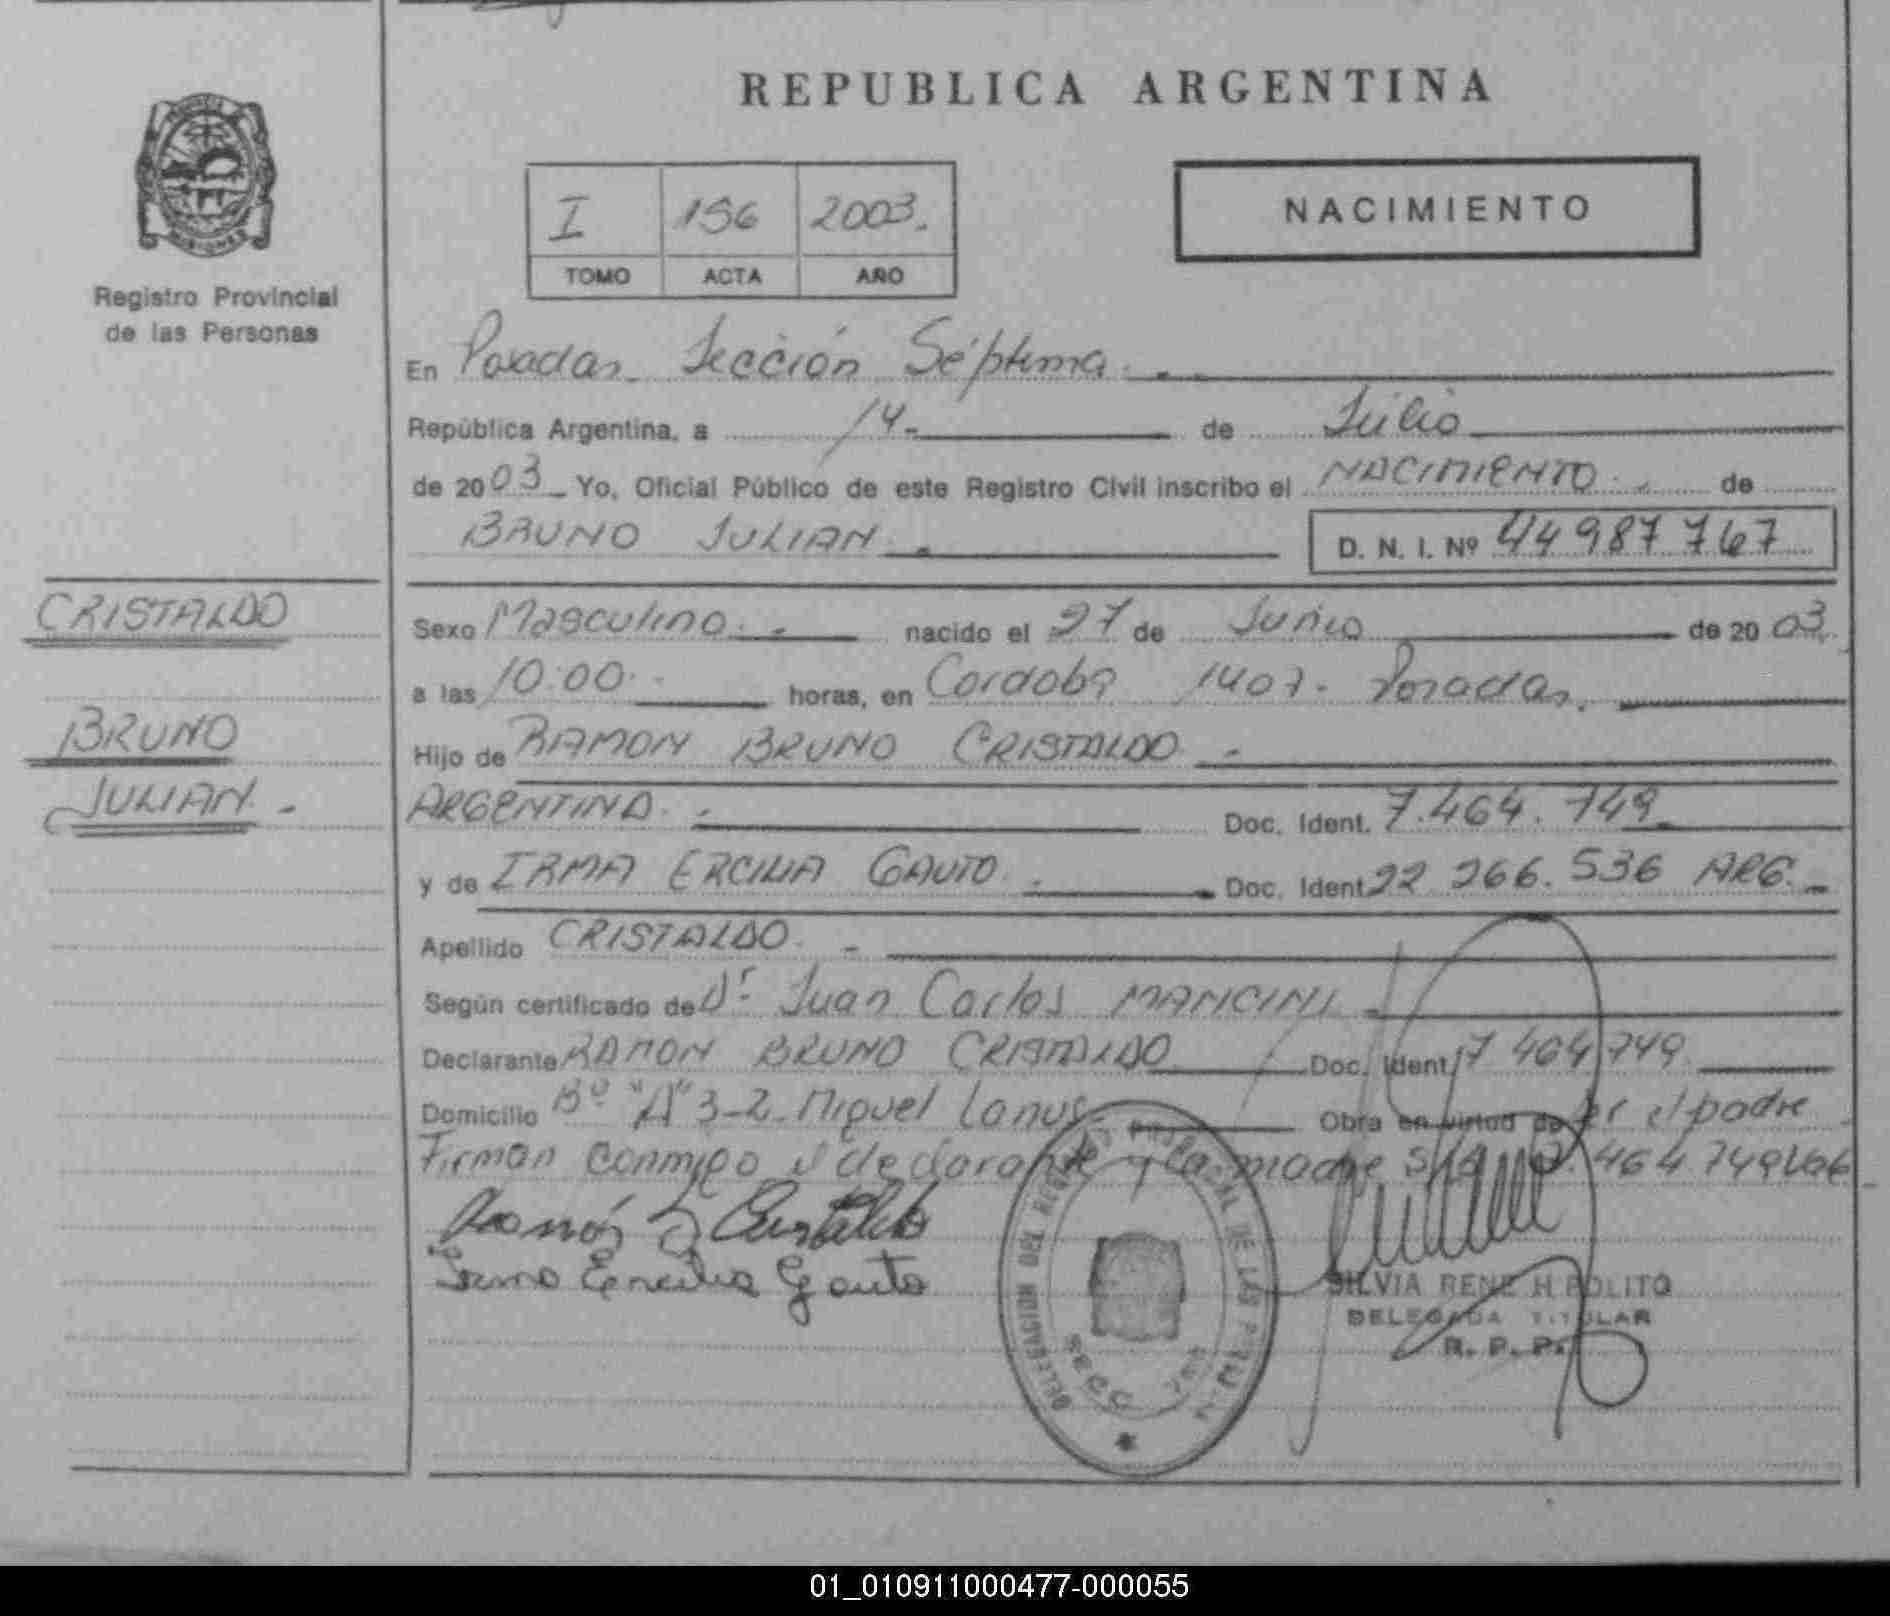 REPUBLICA ARGENTINA
I 156 2003.
TOMO ACTA AÑO
NACIMIENTO
Registro Provincial
de las Personas
En Posadas Sección Séptima.
República Argentina, a 14 de Julio
de 2003 Yo, Oficial Público de este Registro Civil inscribo el NACIMIENTO. de
BRUNO JULIAN. D. N. I. Nº 44 987 767
CRISTALDO
BRUNO
JULIAN. -
Sexo Masculino. nacido el 27 de Junio de 2003.
a las 10:00 horas, en Cordoba 1407. Posadas.
Hijo de RAMON BRUNO CRISTALDO
ARGENTINA. Doc. Ident. 7.464.749
y de IRMA ERCILIA GAUTO. Doc. Ident. 22 266.536 ARG.-
Apellido CRISTALDO. -
Según certificado de Dr. Juan Carlos MANCINI
Declarante RAMON BRUNO CRISTALDO Doc. Ident. 7 464 749
Domicilio Bº "A" 3-2 Miguel Lanus Obra en virtud de ser el padre
Firman conmigo el declarante y la madre 464.749
Ramón B Cristaldo
Irma Ercilia Gauto
DELEGACION DEL REGISTRO PROVINCIAL DE LAS PERSONAS
SECC 7ma
SILVIA RENE HIPOLITO
DELEGADA TITULAR
R. P. P.
01_010911000477-000055